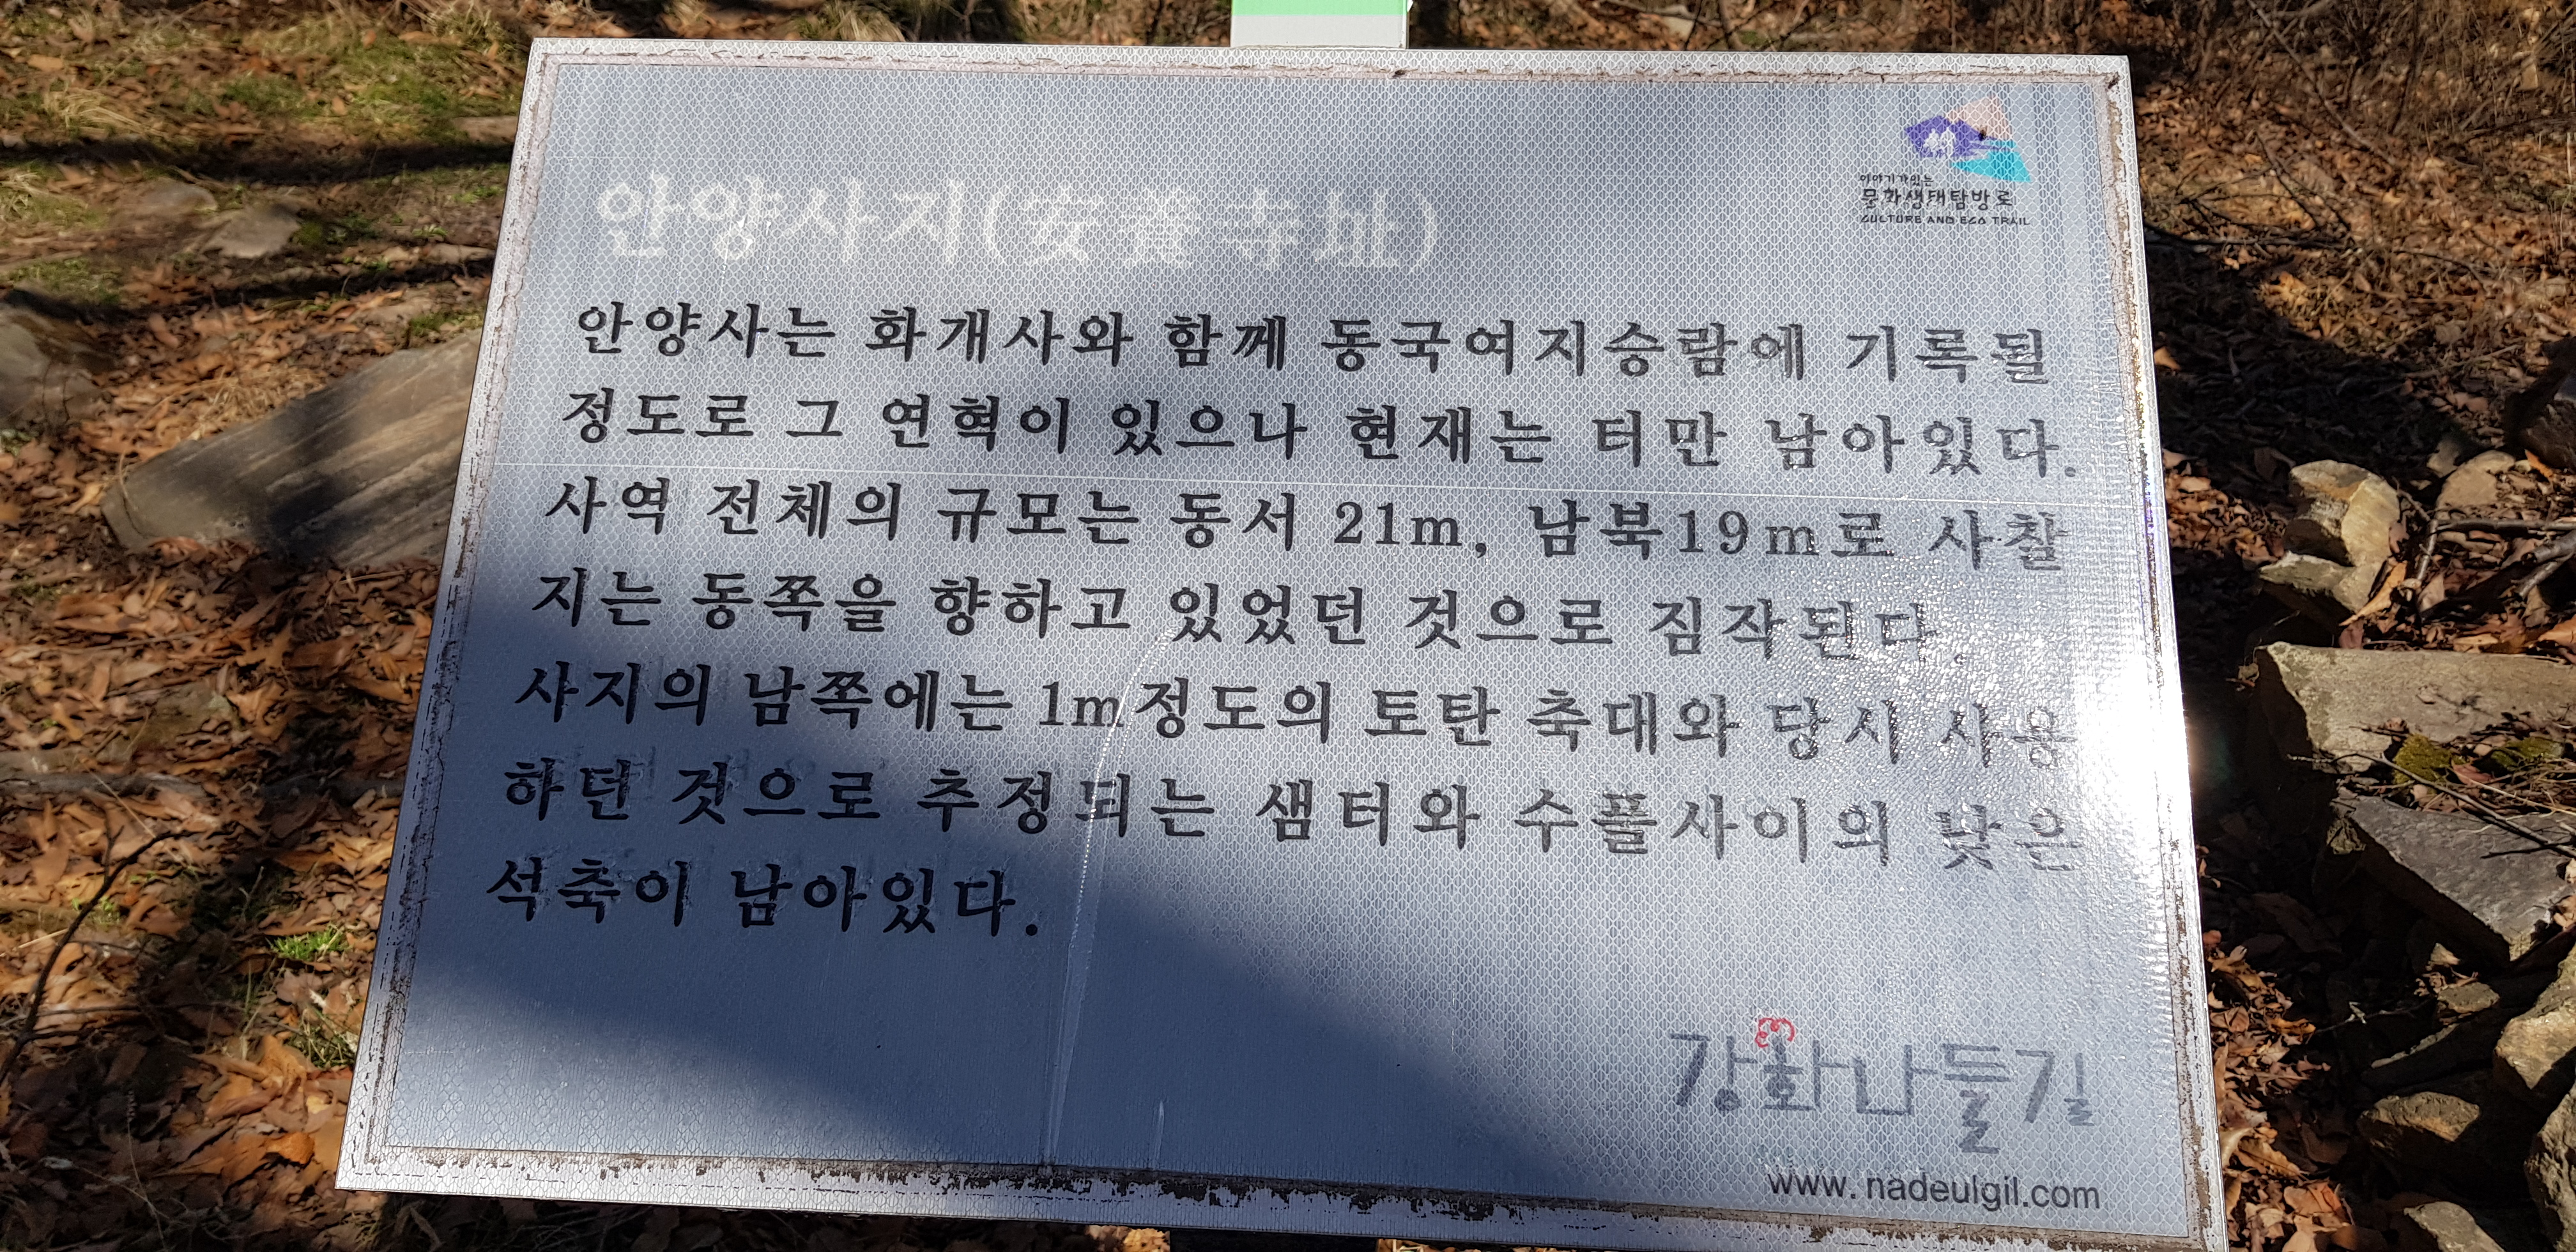 이야기가있는
문화생태탐방로
CULTURE AND ECO TRAIL
안양사지(安養寺址)
안양사는 화개사와 함께 동국여지승람에 기록될
정도로 그 연혁이 있으나 현재는 터만 남아있다.
사역 전체의 규모는 동서 21m, 남북19m로 사찰
지는 동쪽을 향하고 있었던 것으로 짐작된다.
사지의 남쪽에는 1m정도의 토탄 축대와 당시 사용
하던 것으로 추정되는 샘터와 수플사이의 낮은
석축이 남아있다.
강화나들길
www.nadeulgil.com